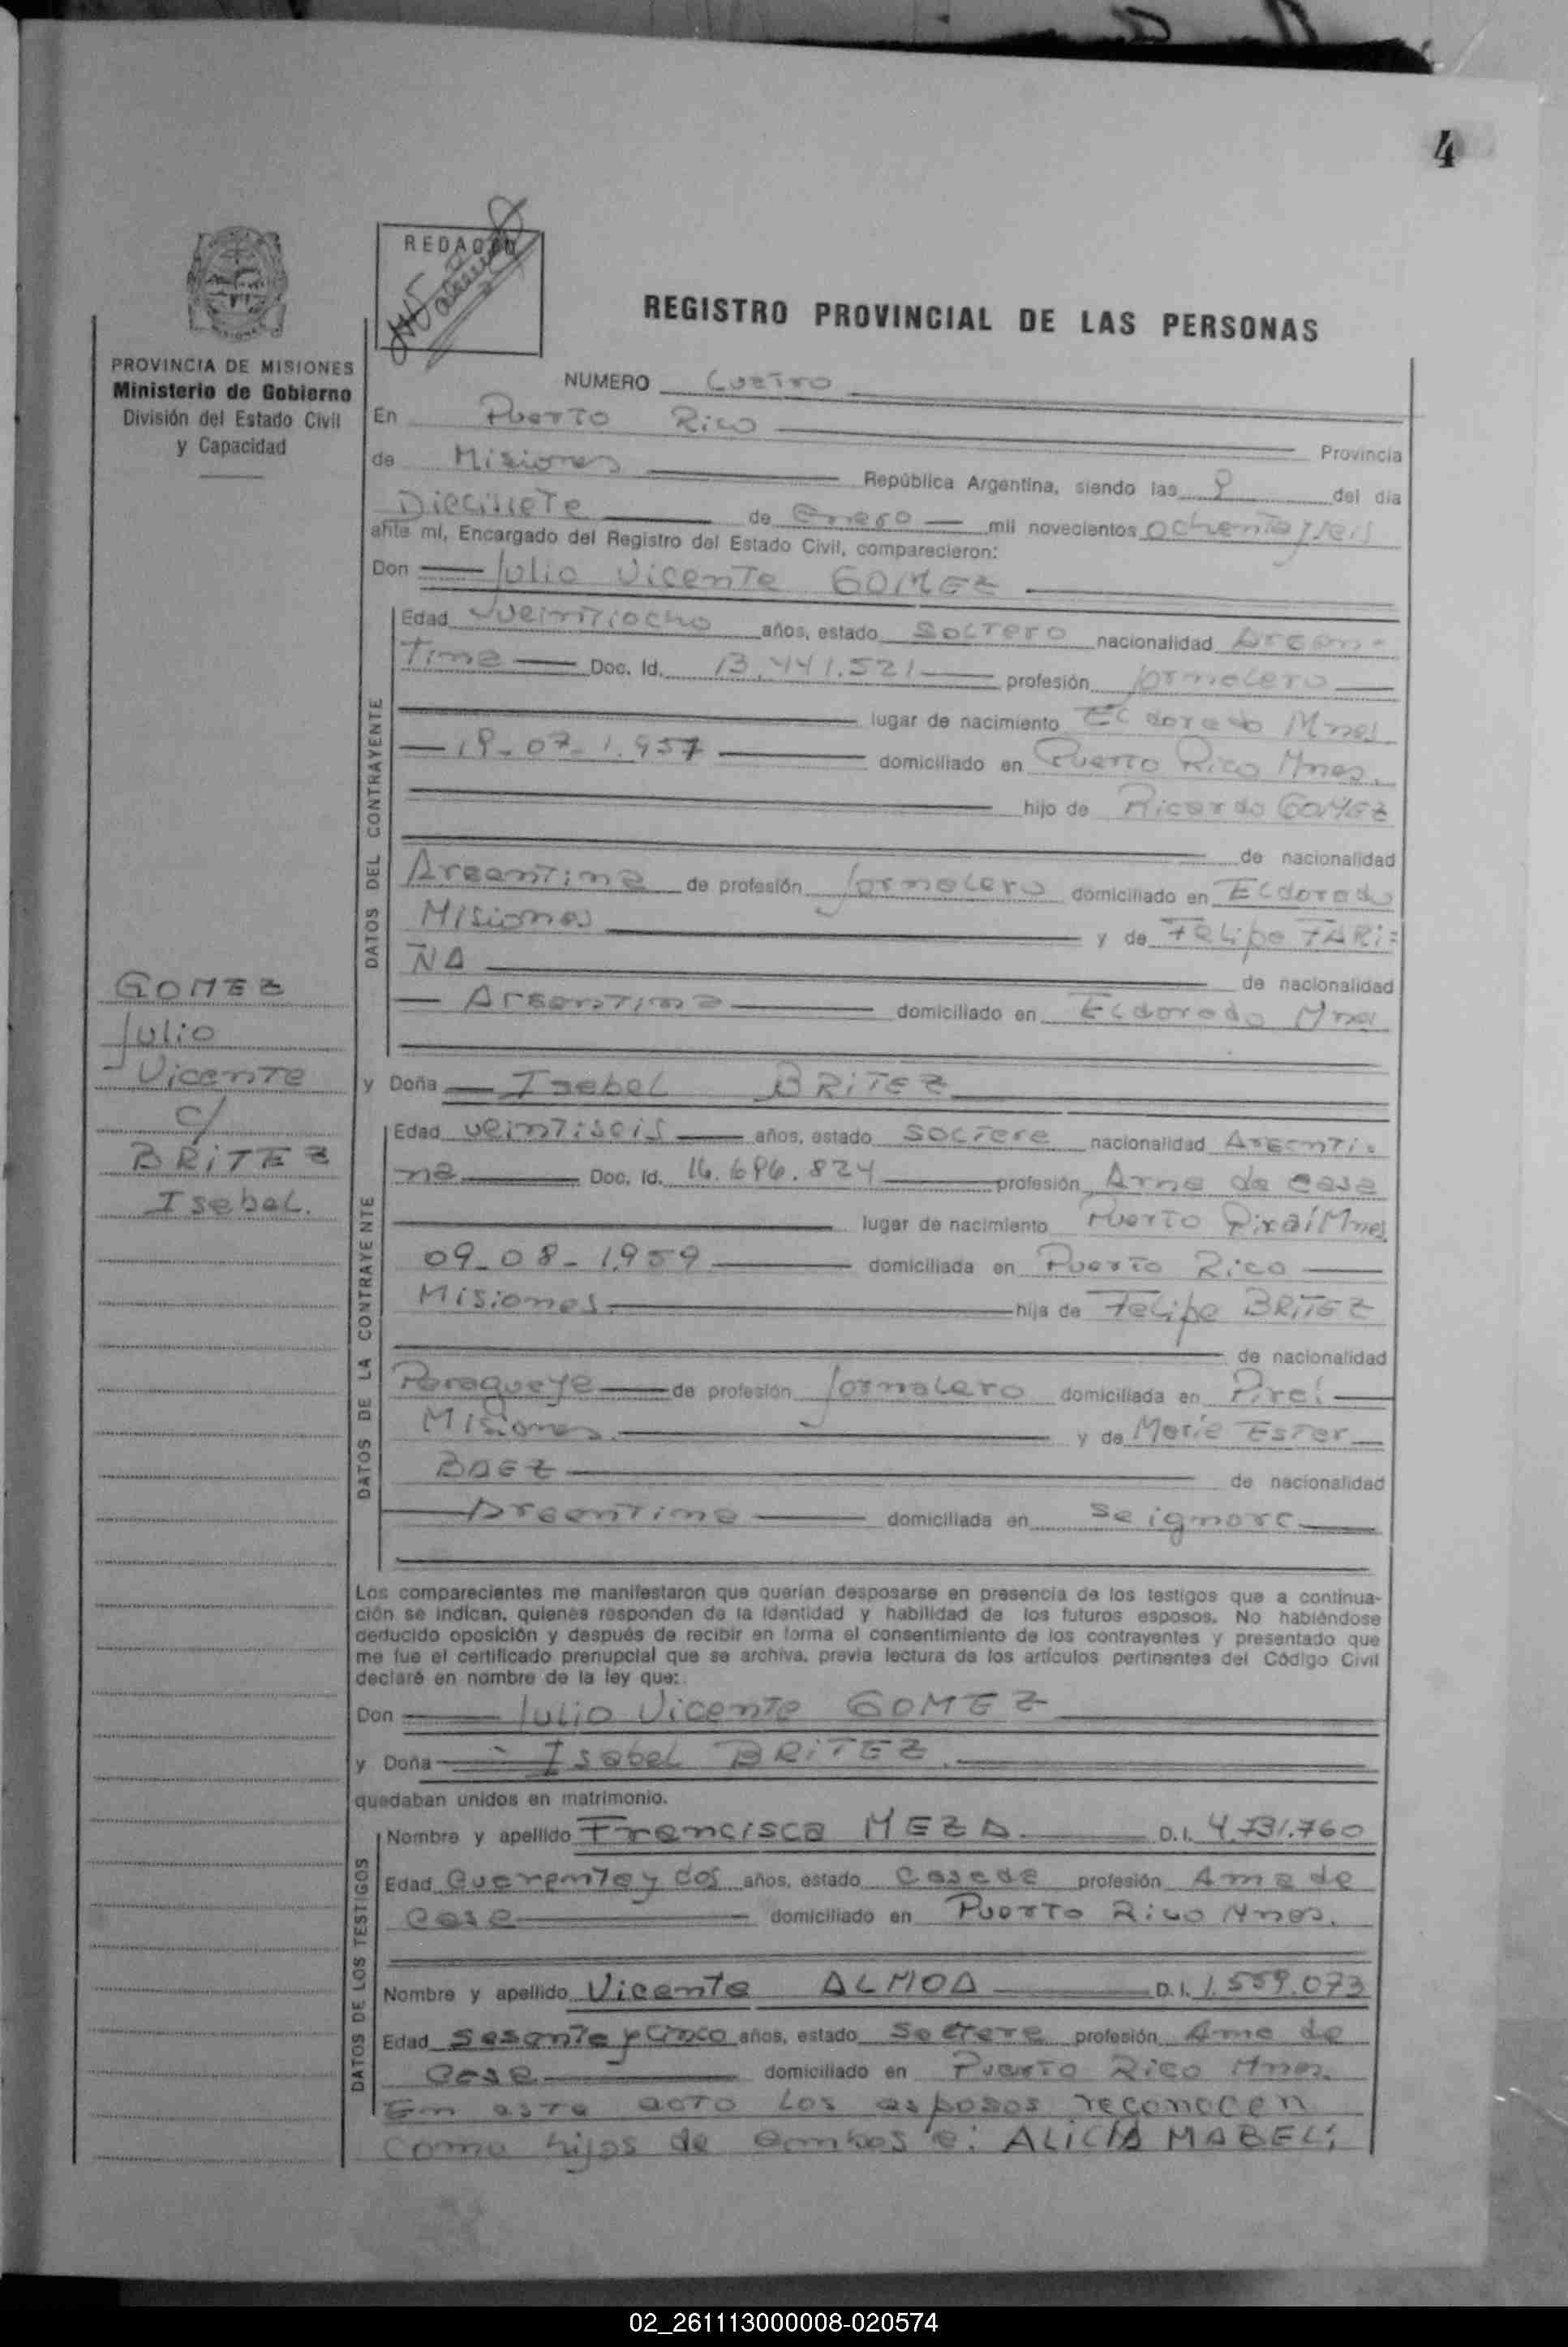 4
REDACTO
REGISTRO PROVINCIAL DE LAS PERSONAS
PROVINCIA DE MISIONES
Ministerio de Gobierno
División del Estado Civil
y Capacidad
NUMERO Cuatro
En Puerto Rico Provincia
de Misiones República Argentina, siendo las 9 del día
Diecisiete de Enero mil novecientos ochenta y seis
ante mí, Encargado del Registro del Estado Civil, comparecieron:
Don Julio Vicente GOMEZ
DATOS DEL CONTRAYENTE
Edad veintiocho años, estado Soltero nacionalidad Argen-
tina Doc. Id. 13.441.521 profesión Jornalero
lugar de nacimiento Eldorado Mnes
19-07-1.957 domiciliado en Puerto Rico Mnes.
hijo de Ricardo GOMEZ
de nacionalidad
Argentina de profesión Jornalero domiciliado en Eldorado
Misiones y de Felipa FARI=
ÑA de nacionalidad
Argentina domiciliado en Eldorado Mnes
GOMEZ
Julio
Vicente
c/
BRiTEZ
Isabel.
y Doña Isabel BRiTEZ
DATOS DE LA CONTRAYENTE
Edad veintiseis años, estado Soltera nacionalidad Argenti-
na Doc. Id. 16.696.824 profesión Ama de casa
lugar de nacimiento Puerto Mnes
09-08-1.959 domiciliada en Puerto Rico
Misiones hija de Felipe BRiTEZ
de nacionalidad
Paraguaya de profesión Jornalero domiciliada en
Misiones y de María Ester
BAEZ de nacionalidad
Argentina domiciliada en Se ignora
Los comparecientes me manifestaron que querían desposarse en presencia de los testigos que a continua-
ción se indican, quienes responden de la identidad y habilidad de los futuros esposos. No habiéndose
deducido oposición y después de recibir en forma el consentimiento de los contrayentes y presentado que
me fue el certificado prenupcial que se archiva, previa lectura de los artículos pertinentes del Código Civil
declaré en nombre de la ley que:
Don Julio Vicente GOMEZ
y Doña Isabel BRiTEZ.
quedaban unidos en matrimonio.
DATOS DE LOS TESTIGOS
Nombre y apellido Francisca MEZA. D.I. 4.731.760
Edad Cuarenta y dos años, estado Casada profesión Ama de
Casa domiciliado en Puerto Rico Mnes.
Nombre y apellido Vicenta ALMOA D.I. 1.559.073
Edad Sesenta y Cinco años, estado Soltera profesión Ama de
Casa domiciliado en Puerto Rico Mnes.
En este acto los esposos reconocen
como hijos de ambos a: ALICIA MABEL;
02_261113000008-020574